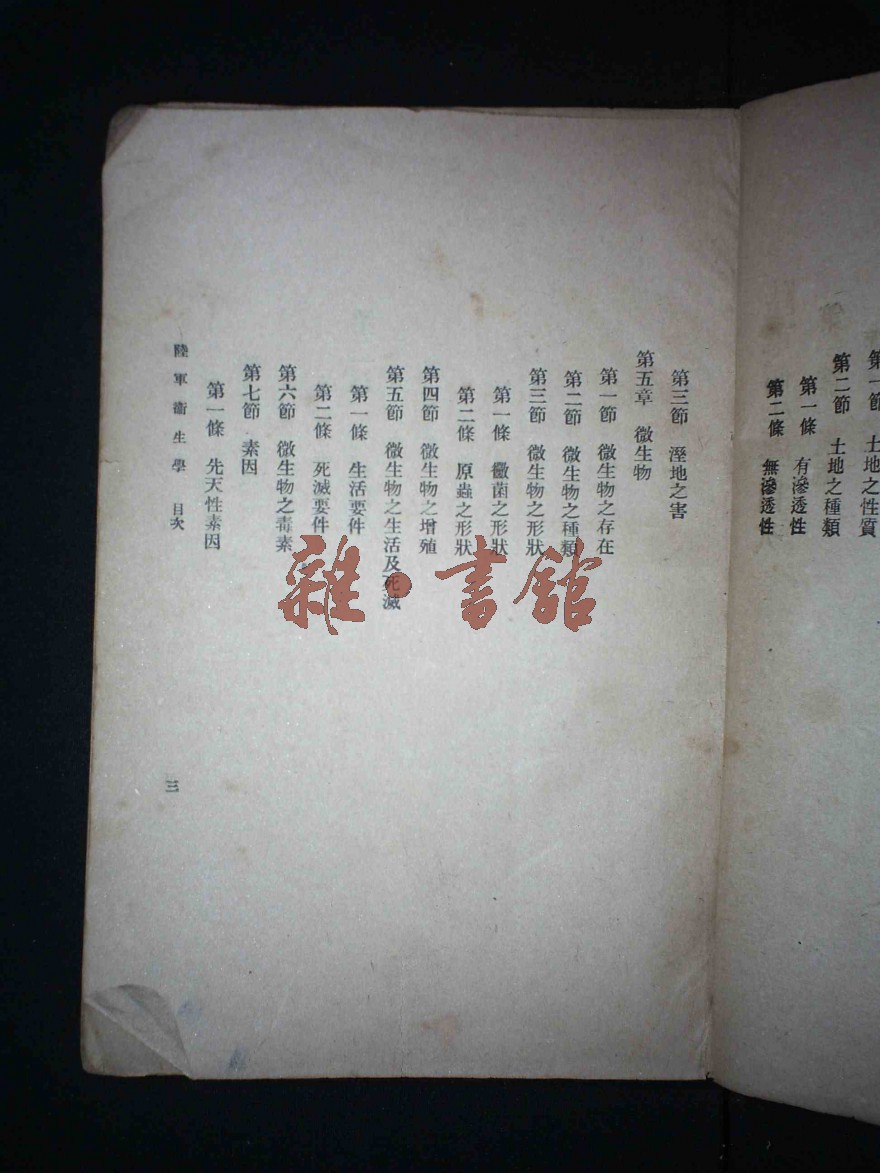 第一節 土地之性質
第二節 土地之種類
第一條 有滲透性
第二條 無滲透性
第三節 溼地之害
第五章 微生物
第一節 微生物之存在
第二節 微生物之種類
第三節 微生物之形狀
第一條 黴菌之形狀
第二條 原蟲之形狀
第四節 微生物之增殖
第五節 微生物之生活及死滅
第一條 生活要件
第二條 死滅要件
第六節 微生物之毒素
第七節 素因
第一條 先天性素因
陸軍衞生學 目次
三
雜·書館